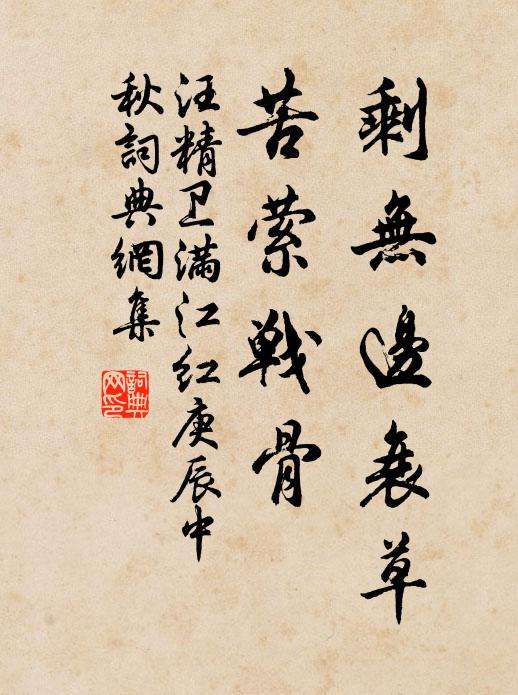 剩無邊衰草
苦縈戰骨
汪精卫滿江红庚辰中
秋詞典網集
詞典
网印